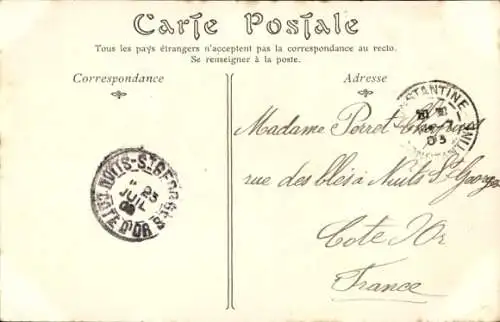 Carte Postale
Tous les pays étrangers n'acceptent pas la correspondance au recto.
Se renseigner à la poste.
Correspondance
Adresse
CONSTANTINE
03
Madame Perret
rue des blés à Nuits St Georges
Cote d'Or
France
NUITS-ST GEORGES
23
JUIL
COTE D'OR